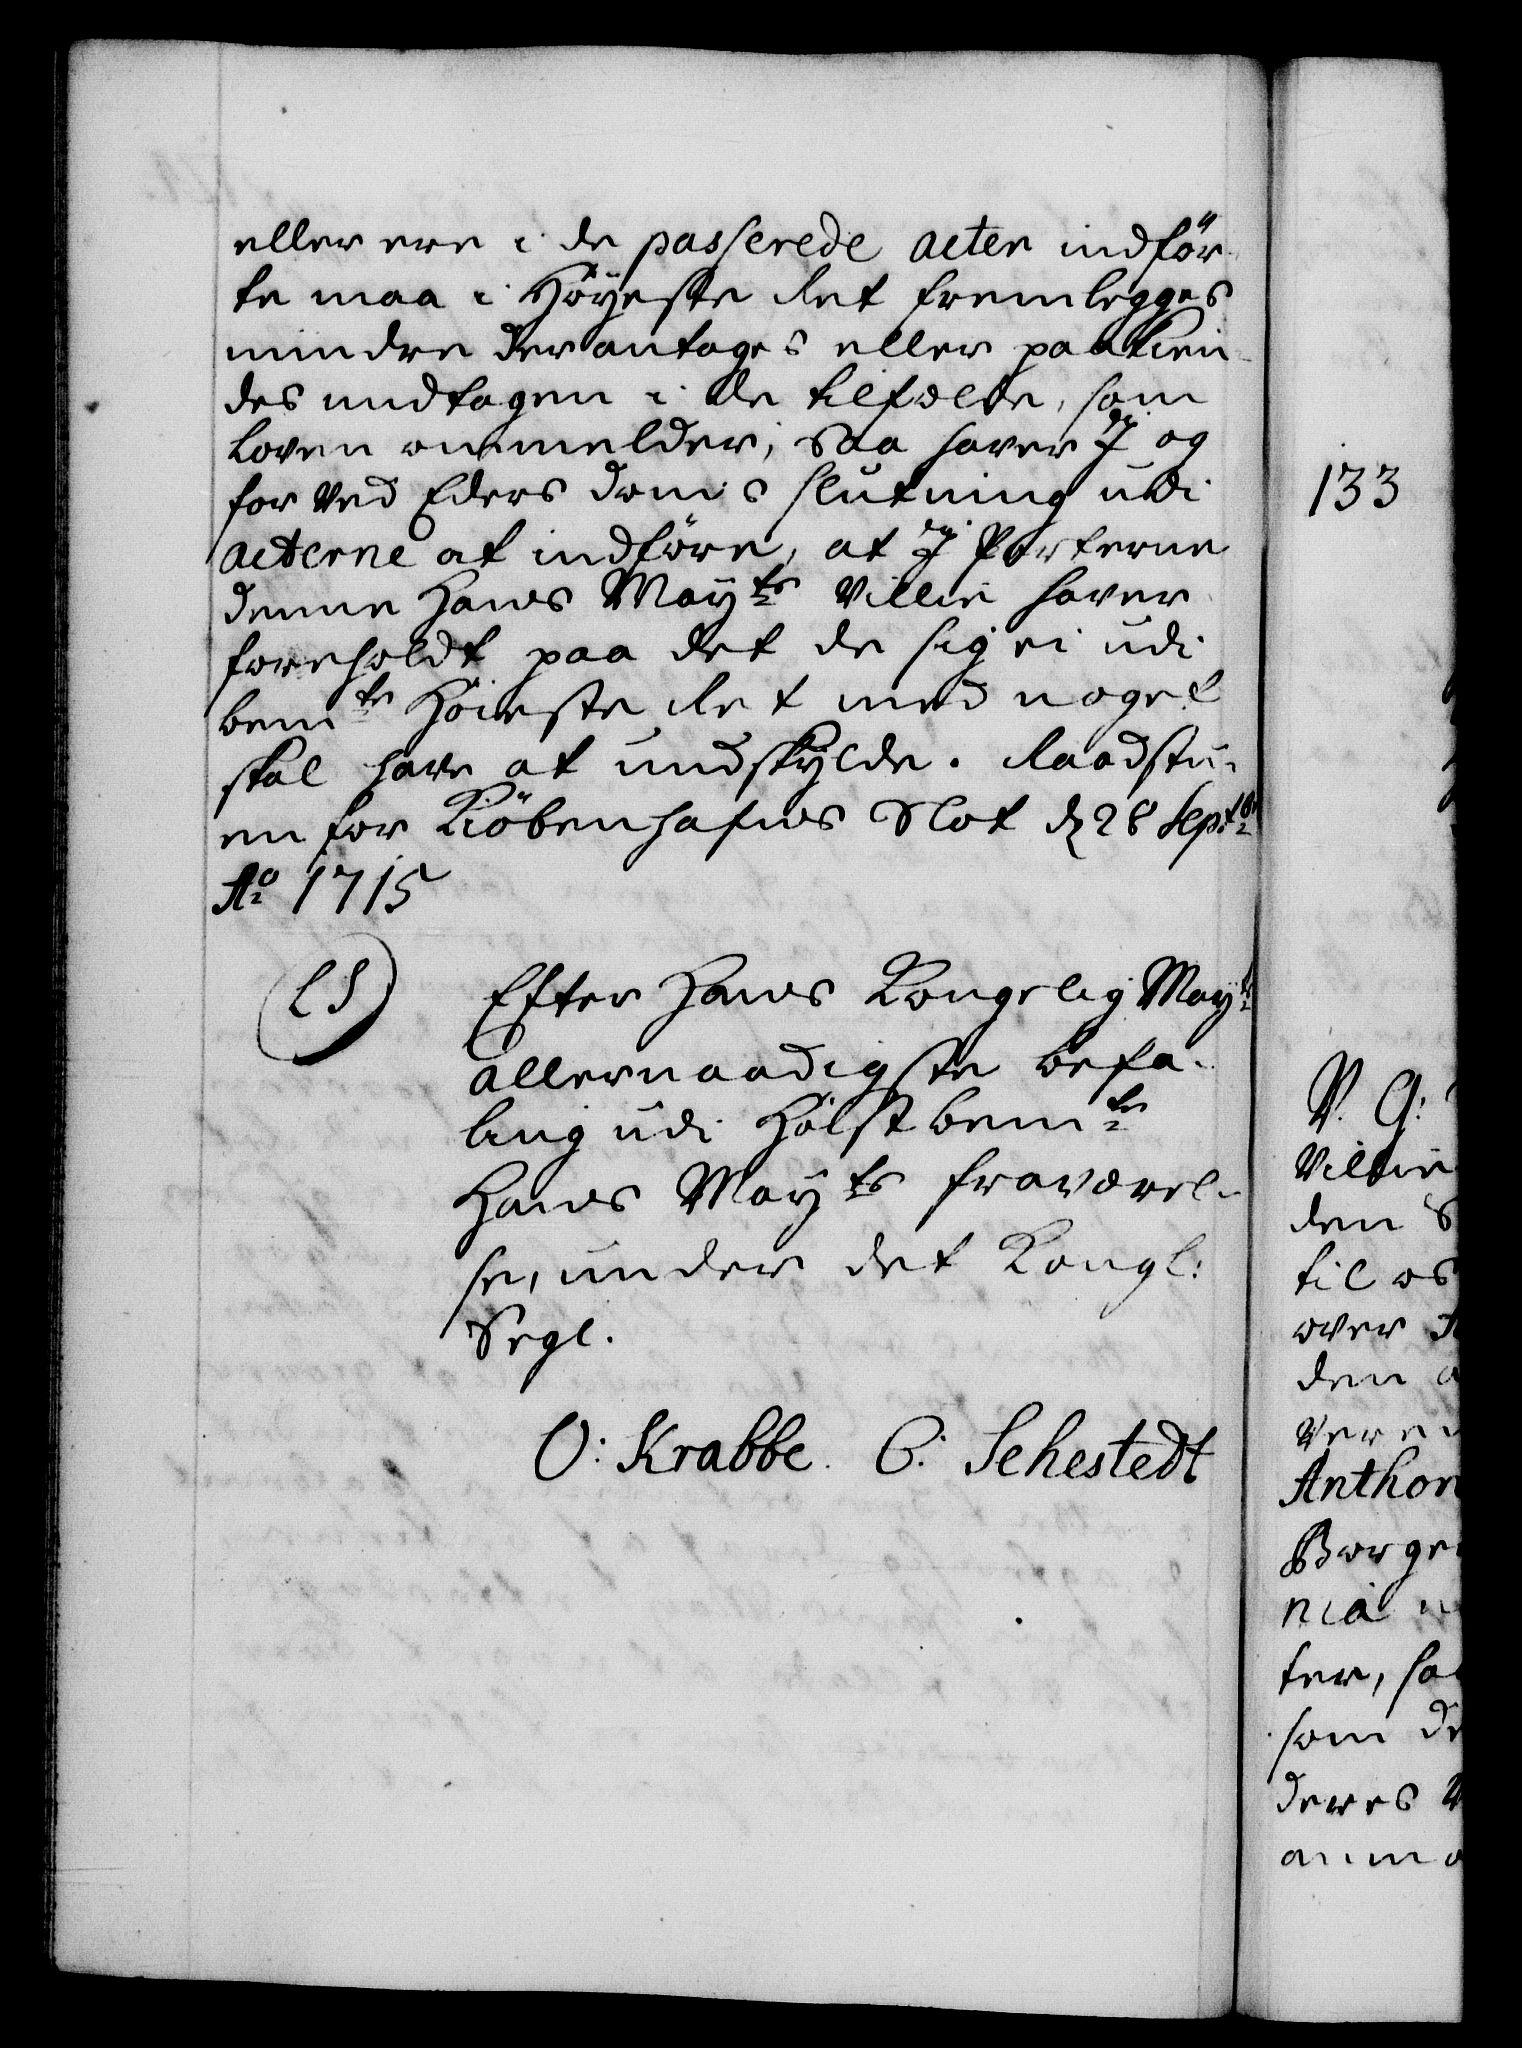 eller ere i de passerede acter indför-
te maa i Höyeste Ret fremlegges
mindre der antages eller paakien-
des undtagen i de tilfælde, som
Loven ommelder; Saa haver I og
for ved Eders doms slutning udi
acterne at indföre, at I Parterne
denne Hans Mayts Villie haver
foreholdt paa det de sig ei udi
bemte Höieste Ret med noget
skal have at undskylde. Raadstu-
en for Kiöbenhafns Slot d 28 Septbr
Ao 1715
LS
Efter Hans Kongelig Mayts
allernaadigste befa-
ling udi Höistbemte
Hans Mayts fraværel-
se, under det Kongl:
Segl.
O: Krabbe. C: Sehestedt
133
V. G:
Villie
den S
til os
over
den
veren
Anthon
Borge
nia
ter, sa
som de
deres
anmo